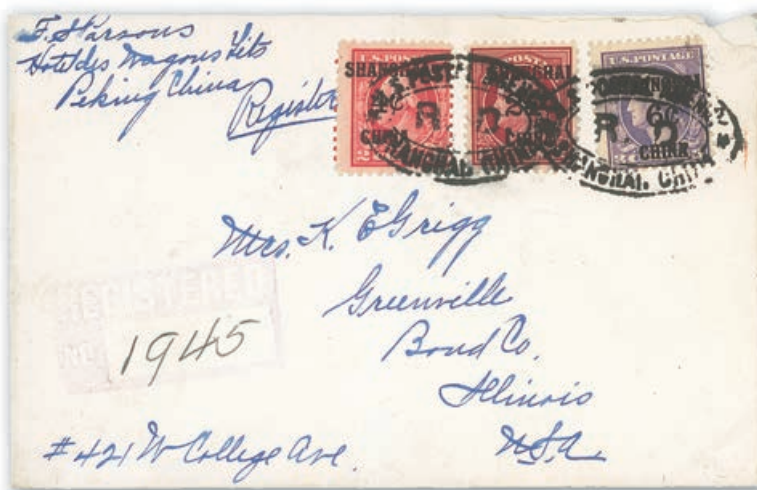 F. Parsons
Hotel des Wagons Lits
Peking China
Register
U.S. POSTAGE
SHANGHAI
4¢
CHINA
U.S. POSTAGE
SHANGHAI
2¢
CHINA
U.S. POSTAGE
SHANGHAI
6¢
CHINA
SHANGHAI, CHINA
SHANGHAI, CHINA
Mrs. K. E Grigg
Greenville
Bond Co.
Illinois
U.S.A.
REGISTERED
NO.
1945
#421 W College Ave.